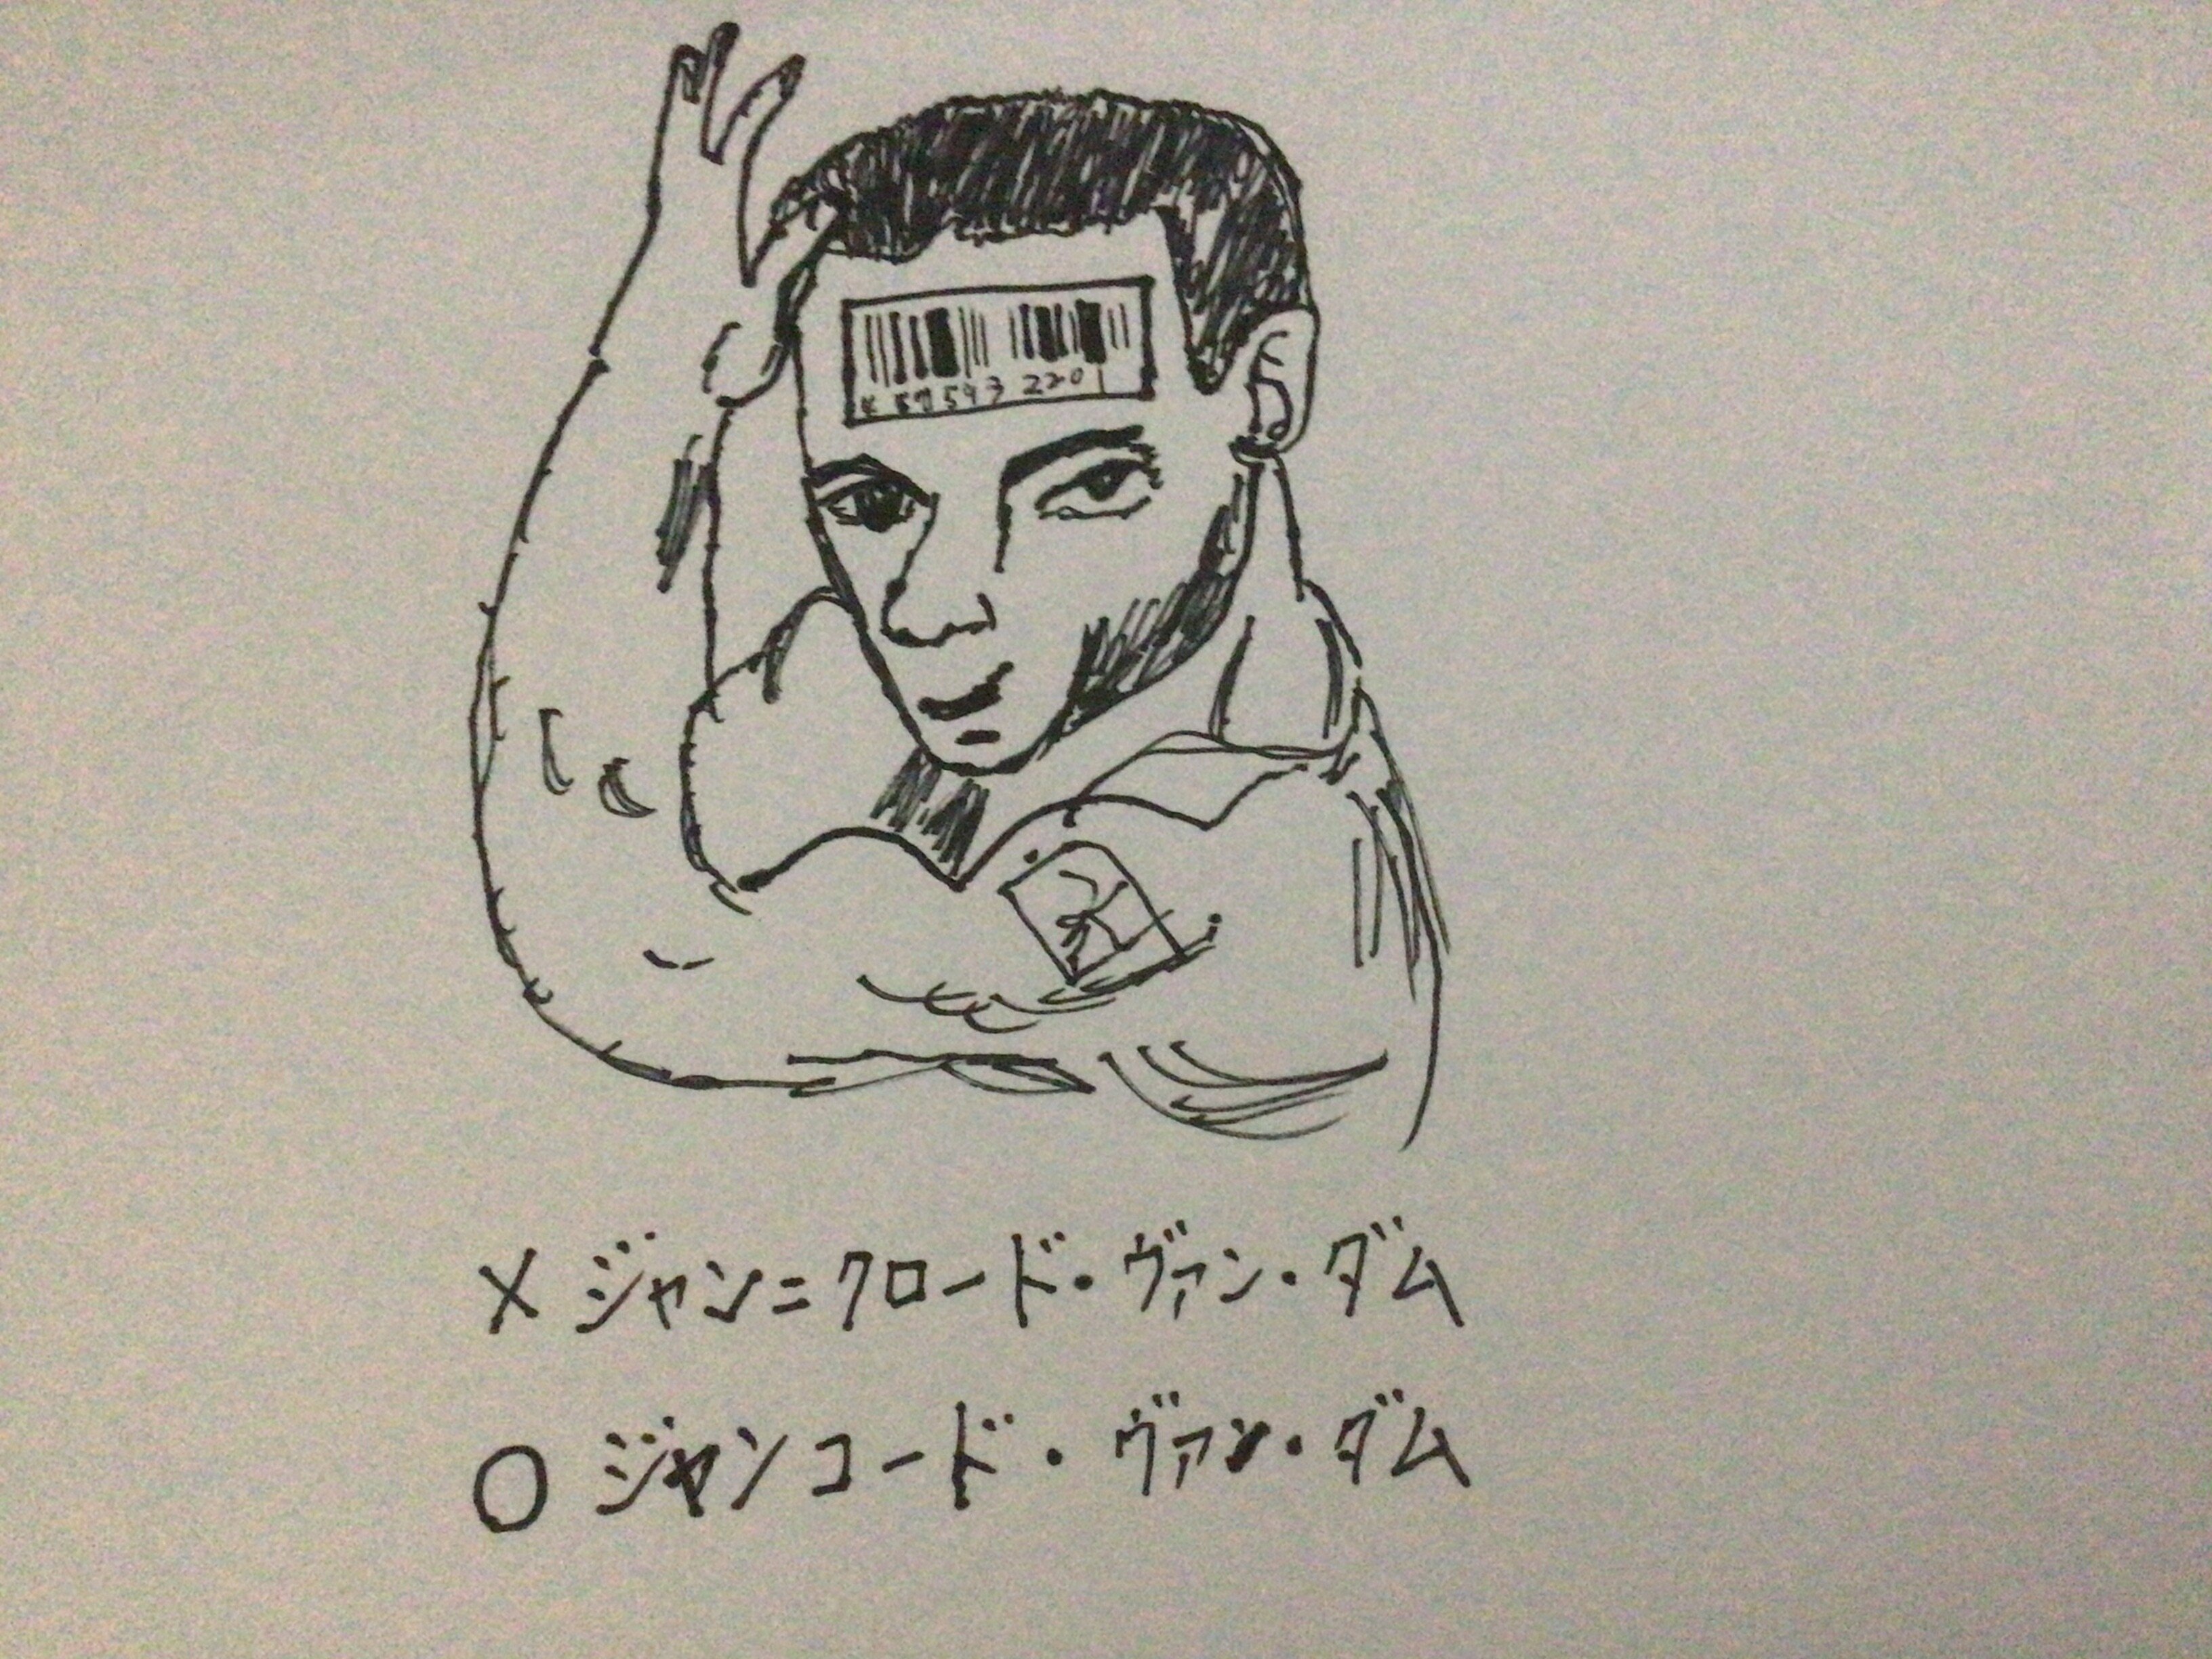 593 220
× ジャン=クロード・ヴァン・ダム
○ ジャンコード・ヴァン・ダム